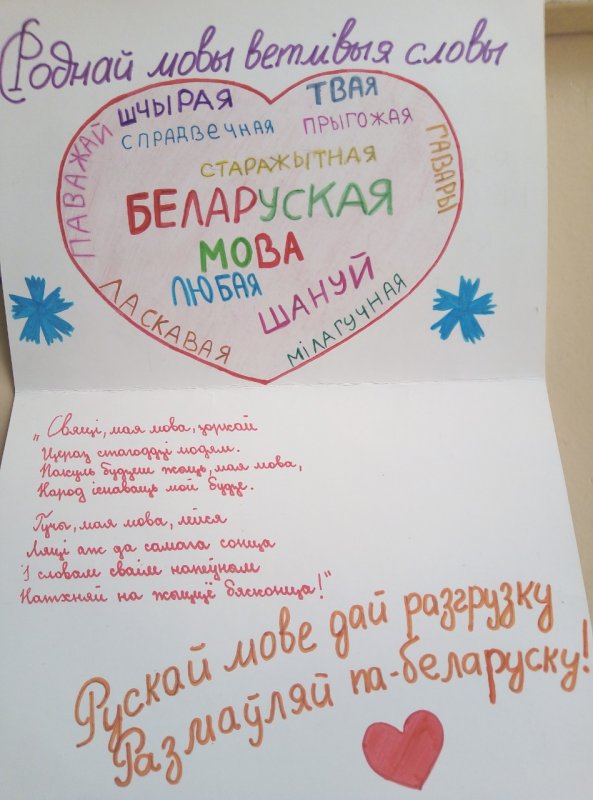 Роднай мовы ветлівыя словы
ШЧЫРАЯ
ТВАЯ
СПРАДВЕЧНАЯ
ПРЫГОЖАЯ
ПАВАЖАЙ
ГАВАРЫ
СТАРАЖЫТНАЯ
БЕЛАРУСКАЯ
МОВА
ЛЮБАЯ
ШАНУЙ
ЛАСКАВАЯ
МІЛАГУЧНАЯ
„Свяці, мая мова, зоркай
Цераз стагоддзі людзям.
Пакуль будзеш жыць, мая мова,
Народ існаваць мой будзе.
Гучы, мая мова, лейся
Ляці аж да самага сонца
І словам сваім напеўным
Натхняй на жыццё бясконца!"
Рускай мове дай разгрузку
Размаўляй па-беларуску!